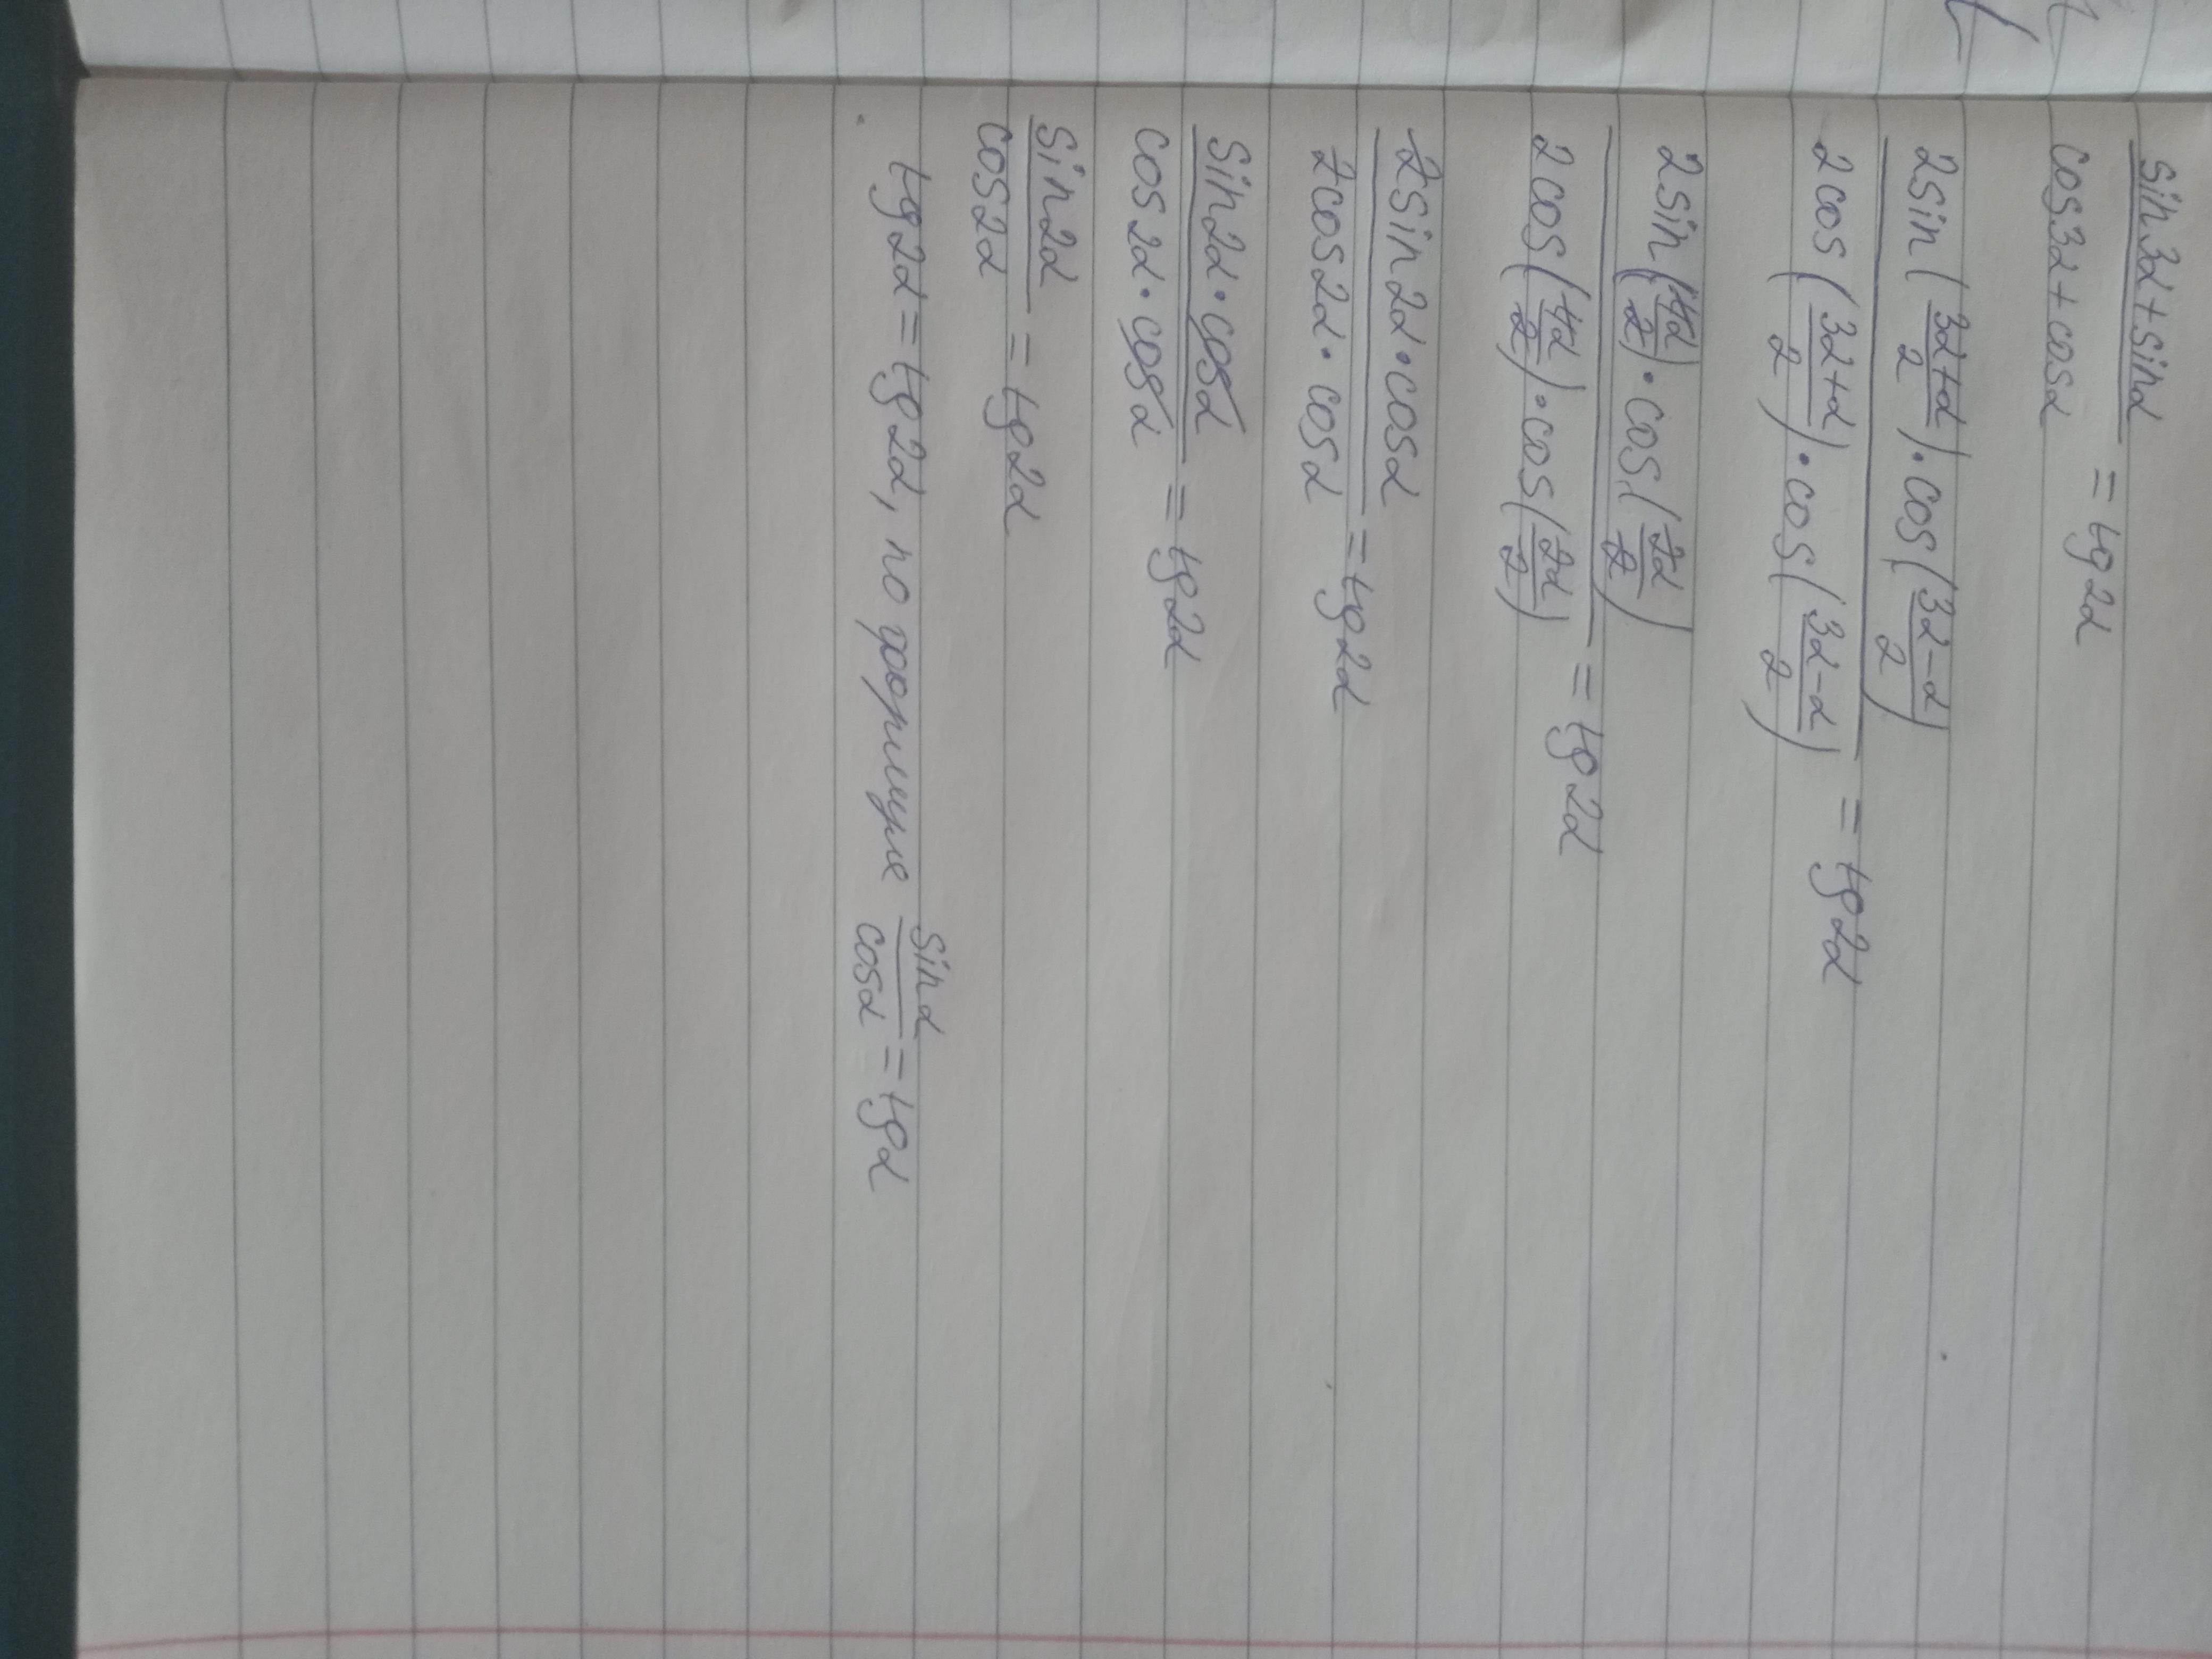 sin3α+sinα / cos3α+cosα = tg2α
2sin(3α+α / 2)·cos(3α-α / 2) / 2cos(3α+α / 2)·cos(3α-α / 2) = tg2α
2sin(4α / 2)·cos(2α / 2) / 2cos(4α / 2)·cos(2α / 2) = tg2α
2sin2α·cosα / 2cos2α·cosα = tg2α
sin2α·cosα / cos2α·cosα = tg2α
sin2α / cos2α = tg2α
tg2α=tg2α, по формуле sinα / cosα = tgα